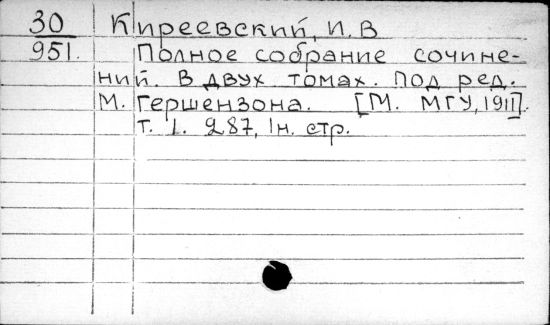 30 Киреевский, И. В
951. Полное собрание сочине-
ний. В двух томах. Под ред.
М. Гершензона. [М. МГУ, 1911].
т. 1. 287, 1н. стр.